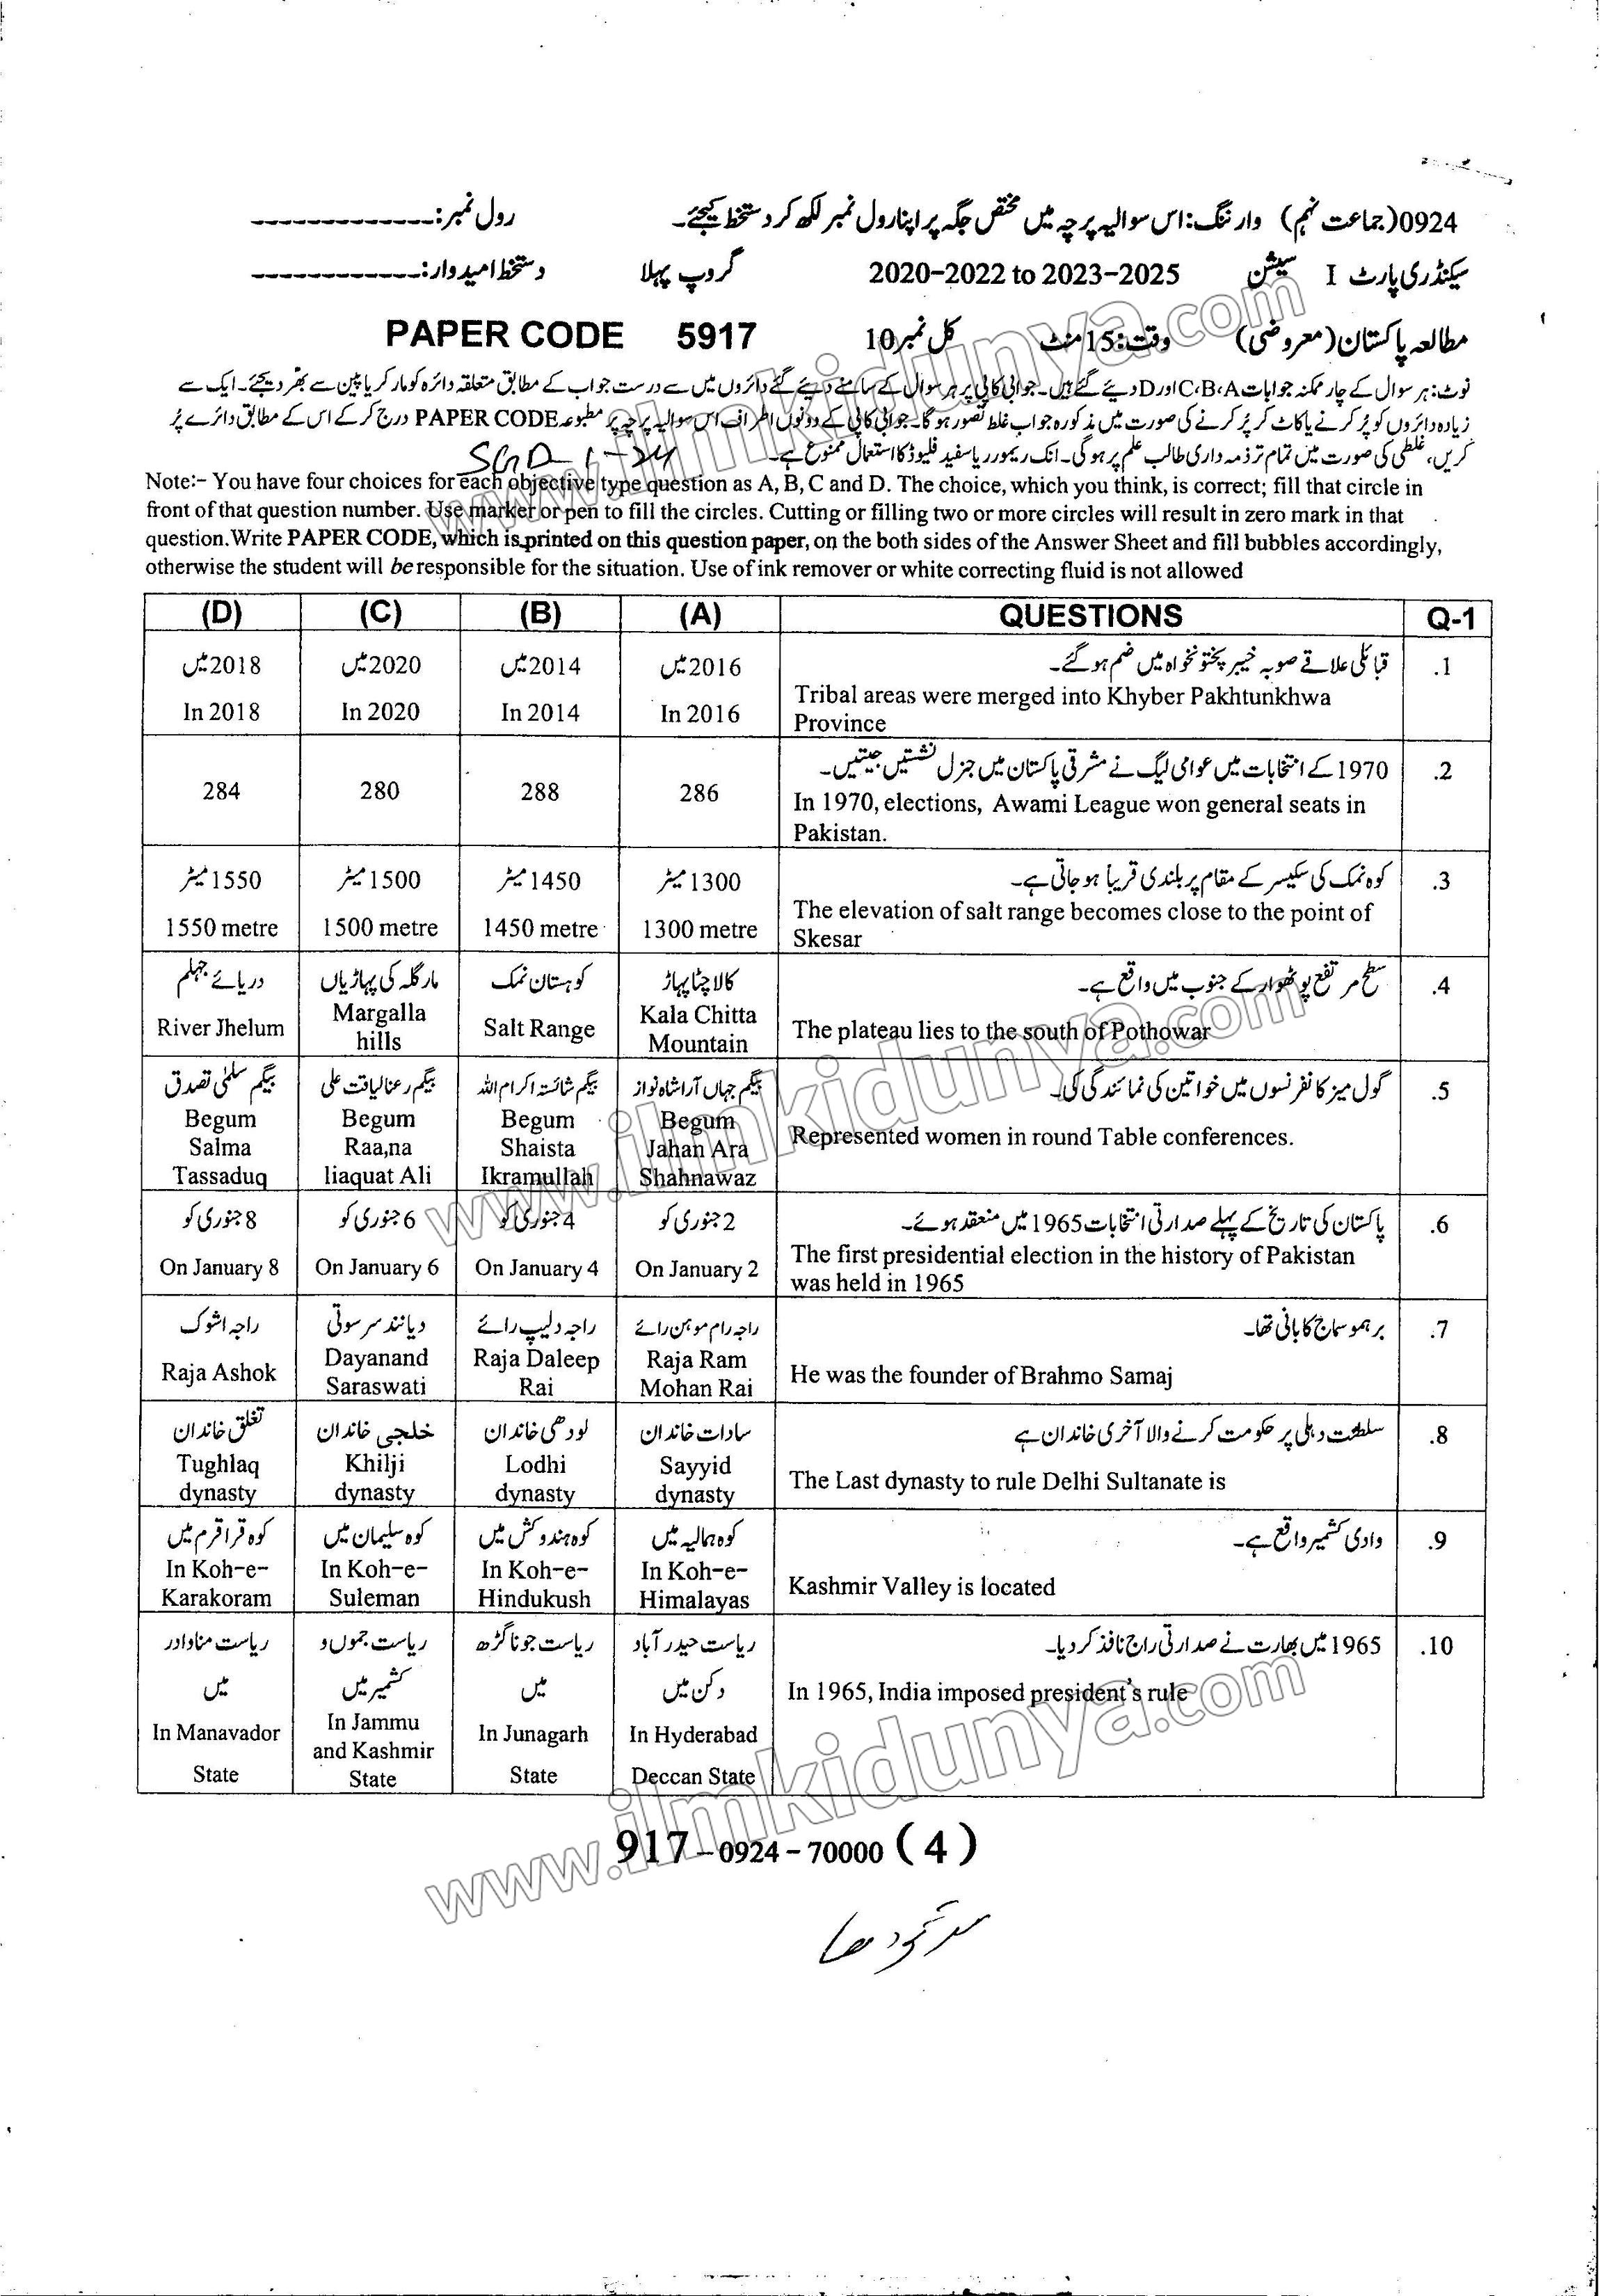 0924(جماعت نہم) وارننگ: اس سوالیہ پرچہ میں مختص جگہ پر اپنا رول نمبر لکھ کر دستخط کیجئے۔ رول نمبر: -------------
سیکنڈری پارٹ I سیشن 2020-2022 to 2023-2025 گروپ پہلا دستخط امیدوار: ------------
مطالعہ پاکستان (معروضی) وقت: 15 منٹ کل نمبر 10 PAPER CODE 5917
نوٹ: ہر سوال کے چار ممکنہ جوابات A،B،C اور D دیئے گئے ہیں۔ جوابی کاپی پر ہر سوال کے سامنے دیئے گئے دائروں میں سے درست جواب کے مطابق متعلقہ دائرہ کو مارکر یا پین سے بھر دیجئے۔ ایک سے
زیادہ دائروں کو پُر کرنے یا کاٹ کر پُر کرنے کی صورت میں مذکورہ جواب غلط تصور ہو گا۔ جوابی کاپی کے دونوں اطراف اس سوالیہ پرچہ پر مطبوعہ PAPER CODE درج کر کے اس کے مطابق دائرے پُر
کریں، غلطی کی صورت میں تمام تر ذمہ داری طالب علم پر ہوگی۔ انک ریموور یا سفید فلیوڈ کا استعمال ممنوع ہے۔
SGD-1-24
Note:- You have four choices for each objective type question as A, B, C and D. The choice, which you think, is correct; fill that circle in
front of that question number. Use marker or pen to fill the circles. Cutting or filling two or more circles will result in zero mark in that
question. Write PAPER CODE, which is printed on this question paper, on the both sides of the Answer Sheet and fill bubbles accordingly,
otherwise the student will be responsible for the situation. Use of ink remover or white correcting fluid is not allowed
(D) (C) (B) (A) QUESTIONS Q-1
.1 قبائلی علاقے صوبہ خیبر پختونخواہ میں ضم ہو گئے۔
Tribal areas were merged into Khyber Pakhtunkhwa
Province
2016 میں
In 2016
2014 میں
In 2014
2020 میں
In 2020
2018 میں
In 2018
.2 1970 کے انتخابات میں عوامی لیگ نے مشرقی پاکستان میں جنرل نشستیں جیتیں۔
In 1970, elections, Awami League won general seats in
Pakistan.
286
288
280
284
.3 کوہ نمک کی سکیسر کے مقام پر بلندی قریباً ہو جاتی ہے۔
The elevation of salt range becomes close to the point of
Skesar
1300 میٹر
1300 metre
1450 میٹر
1450 metre
1500 میٹر
1500 metre
1550 میٹر
1550 metre
.4 سطح مرتفع پوٹھوار کے جنوب میں واقع ہے۔
The plateau lies to the south of Pothowar
کالا چٹا پہاڑ
Kala Chitta
Mountain
کوہستان نمک
Salt Range
مارگلہ کی پہاڑیاں
Margalla
hills
دریائے جہلم
River Jhelum
.5 گول میز کانفرنسوں میں خواتین کی نمائندگی کی۔
Represented women in round Table conferences.
بیگم جہاں آرا شاہ نواز
Begum
Jahan Ara
Shahnawaz
بیگم شائستہ اکرام اللہ
Begum
Shaista
Ikramullah
بیگم رعنا لیاقت علی
Begum
Raa,na
liaquat Ali
بیگم سلمیٰ تصدق
Begum
Salma
Tassaduq
.6 پاکستان کی تاریخ کے پہلے صدارتی انتخابات 1965 میں منعقد ہوئے۔
The first presidential election in the history of Pakistan
was held in 1965
2 جنوری کو
On January 2
4 جنوری کو
On January 4
6 جنوری کو
On January 6
8 جنوری کو
On January 8
.7 برہمو سماج کا بانی تھا۔
He was the founder of Brahmo Samaj
راجہ رام موہن رائے
Raja Ram
Mohan Rai
راجہ دلیپ رائے
Raja Daleep
Rai
دیانند سرسوتی
Dayanand
Saraswati
راجہ اشوک
Raja Ashok
.8 سلطنت دہلی پر حکومت کرنے والا آخری خاندان ہے
The Last dynasty to rule Delhi Sultanate is
سادات خاندان
Sayyid
dynasty
لودھی خاندان
Lodhi
dynasty
خلجی خاندان
Khilji
dynasty
تغلق خاندان
Tughlaq
dynasty
.9 وادی کشمیر واقع ہے۔
Kashmir Valley is located
کوہ ہمالیہ میں
In Koh-e-
Himalayas
کوہ ہندوکش میں
In Koh-e-
Hindukush
کوہ سلیمان میں
In Koh-e-
Suleman
کوہ قراقرم میں
In Koh-e-
Karakoram
.10 1965 میں بھارت نے صدارتی راج نافذ کر دیا۔
In 1965, India imposed president's rule
ریاست حیدر آباد
دکن میں
In Hyderabad
Deccan State
ریاست جوناگڑھ
میں
In Junagarh
State
ریاست جموں و
کشمیر میں
In Jammu
and Kashmir
State
ریاست مناوادر
میں
In Manavador
State
917-0924-70000 (4)
سرگودھا
www.ilmkidunya.com
www.ilmkidunya.com
www.ilmkidunya.com